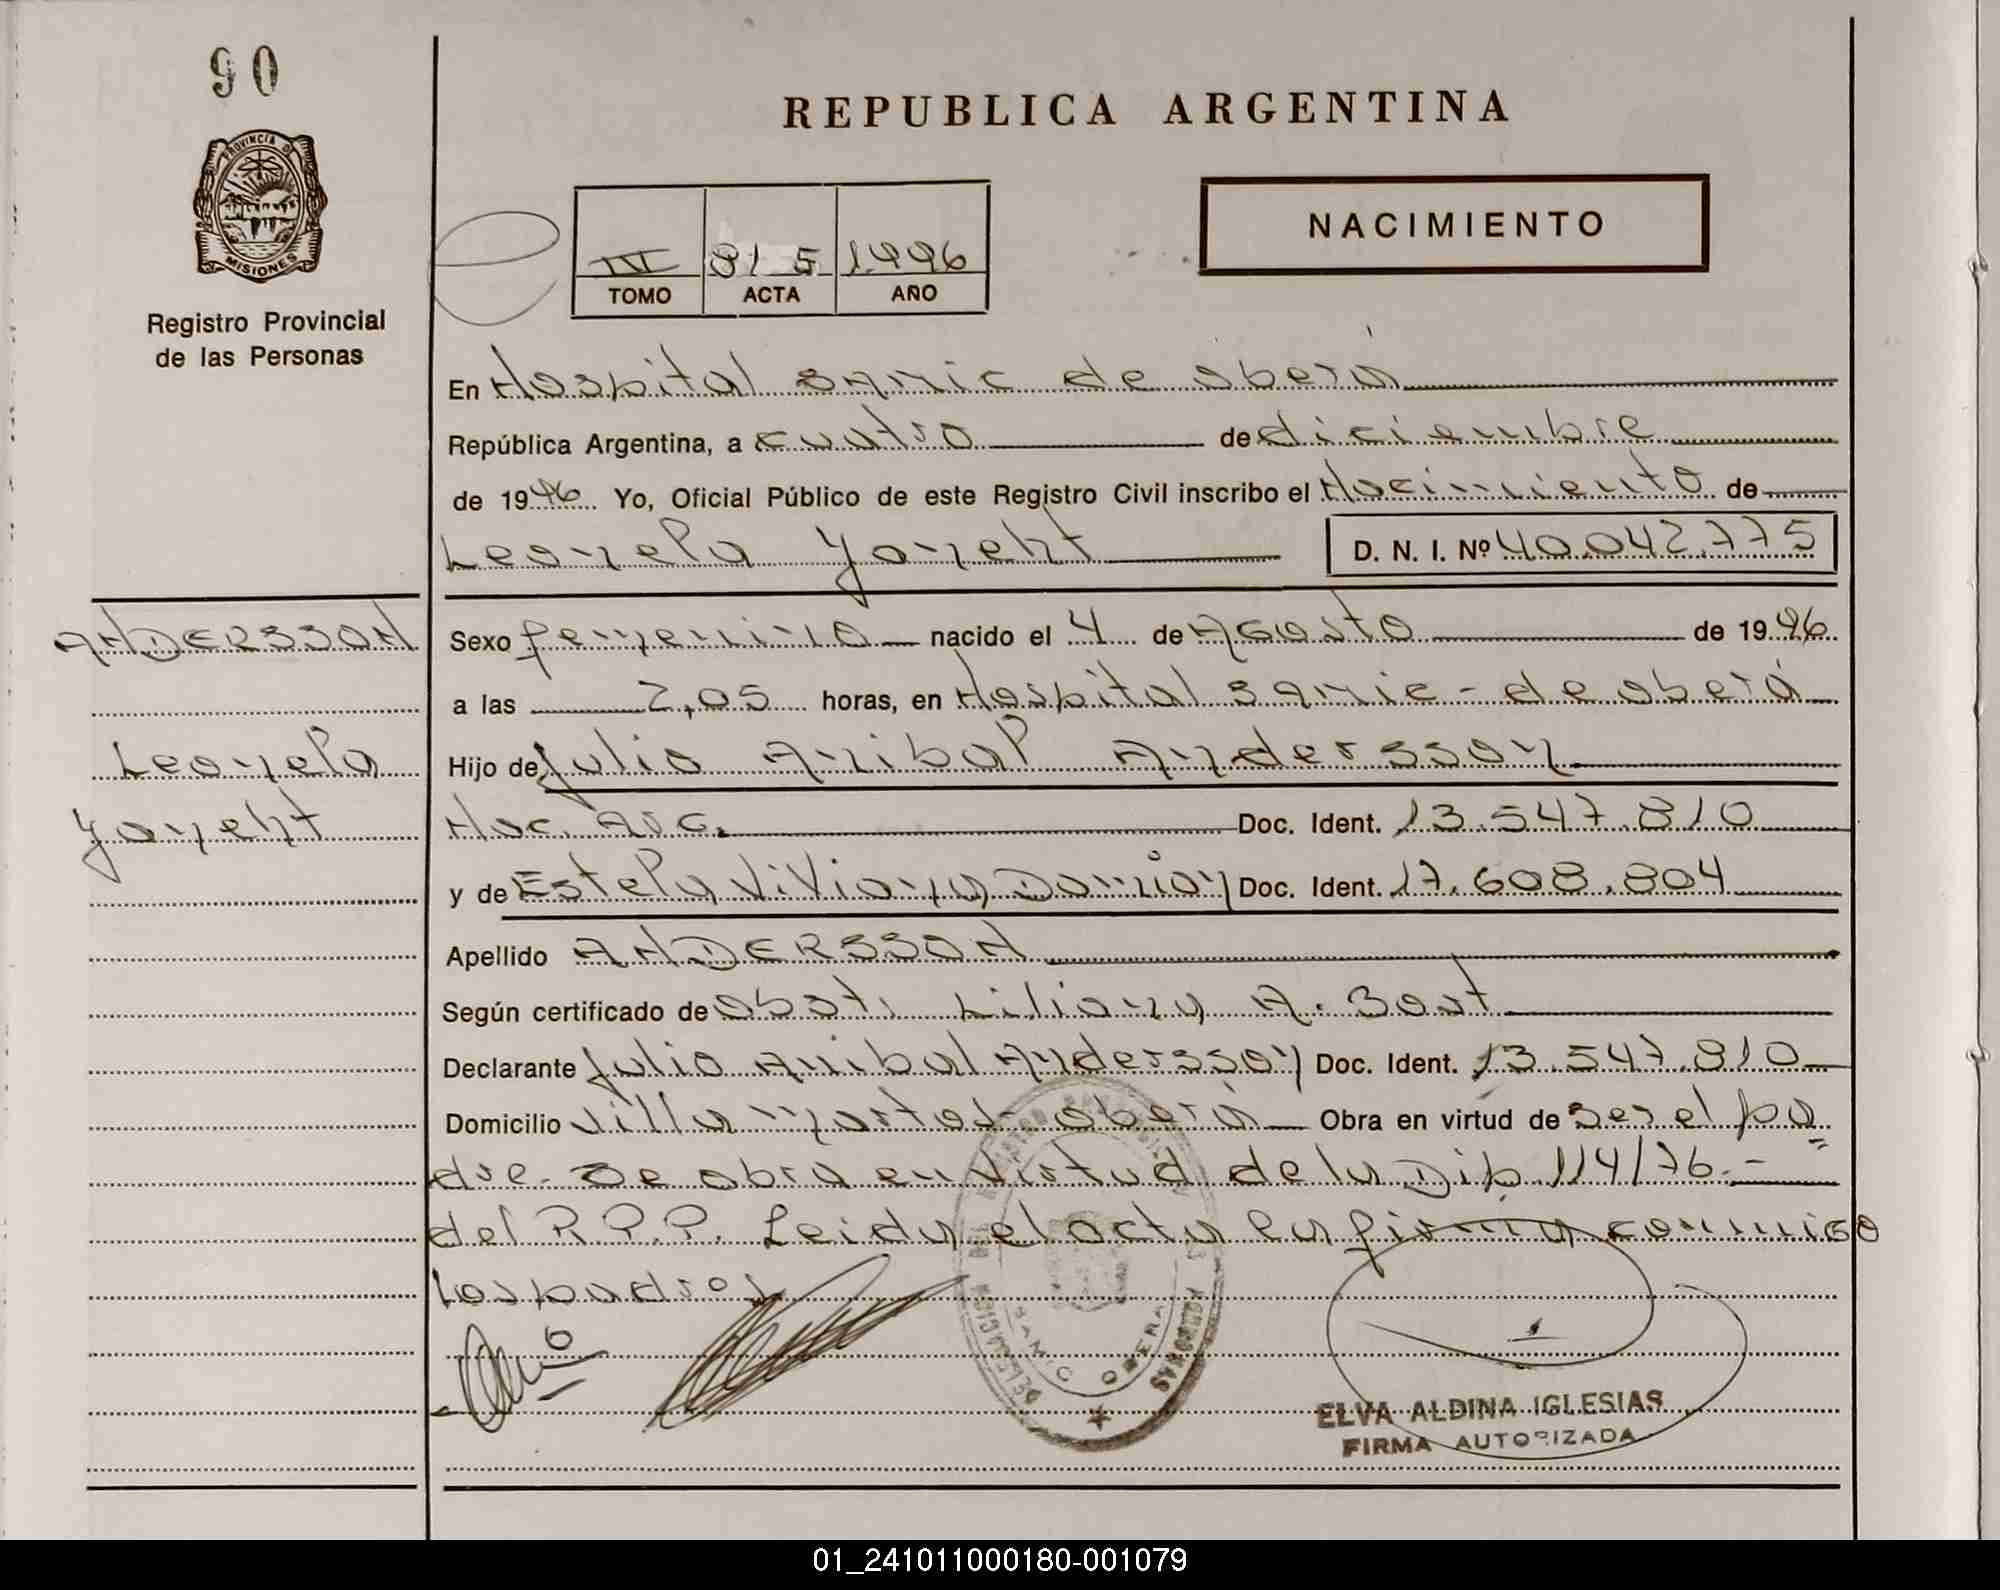 90
PROVINCIA D
MISIONES
Registro Provincial
de las Personas
REPUBLICA ARGENTINA
NACIMIENTO
III 815 1996
TOMO ACTA AÑO
En Hospital SAMIC de oberá
República Argentina, a cuatro de diciembre
de 1996 Yo, Oficial Público de este Registro Civil inscribo el Nacimiento de
Leonela Yaneht D. N. I. Nº 40.042.775
ANDERSSON
Leonela
Yaneht
Sexo femenino nacido el 4 de Agosto de 1996
a las 2,05 horas, en Hospital SAMIC - de oberá
Hijo de Julio Anibal Andersson
Nac. Arg. Doc. Ident. 13.547.810
y de Estela Viviana Doc. Ident. 17.608.804
Apellido ANDERSSON
Según certificado de obst. Liliana A.
Declarante Julio Anibal Andersson Doc. Ident. 13.547.810
Domicilio Villa oberá Obra en virtud de ser el pa
dre. Se obra en virtud de la Dip 114/76.-
del R.P.P. Leida el acta la firma conmigo
Los padres
SAMIC OBERA
PERSONAS
DELEGACION
ELVA ALDINA IGLESIAS
FIRMA AUTORIZADA
01_241011000180-001079